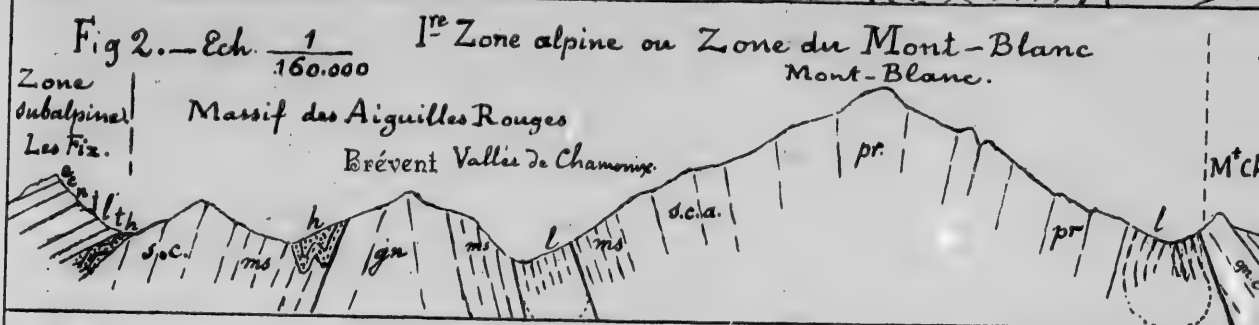 Fig 2.— Ech. 1/160.000 Ire Zone alpine ou Zone du Mont-Blanc
Mont-Blanc.
Zone
subalpine
Les Fiz.
Massif des Aiguilles Rouges
Brévent Vallée de Chamonix.
Mt Ch
l t h
s.c.
ms
h
gn
ms
l
ms
s.c.a.
pr.
pr
l